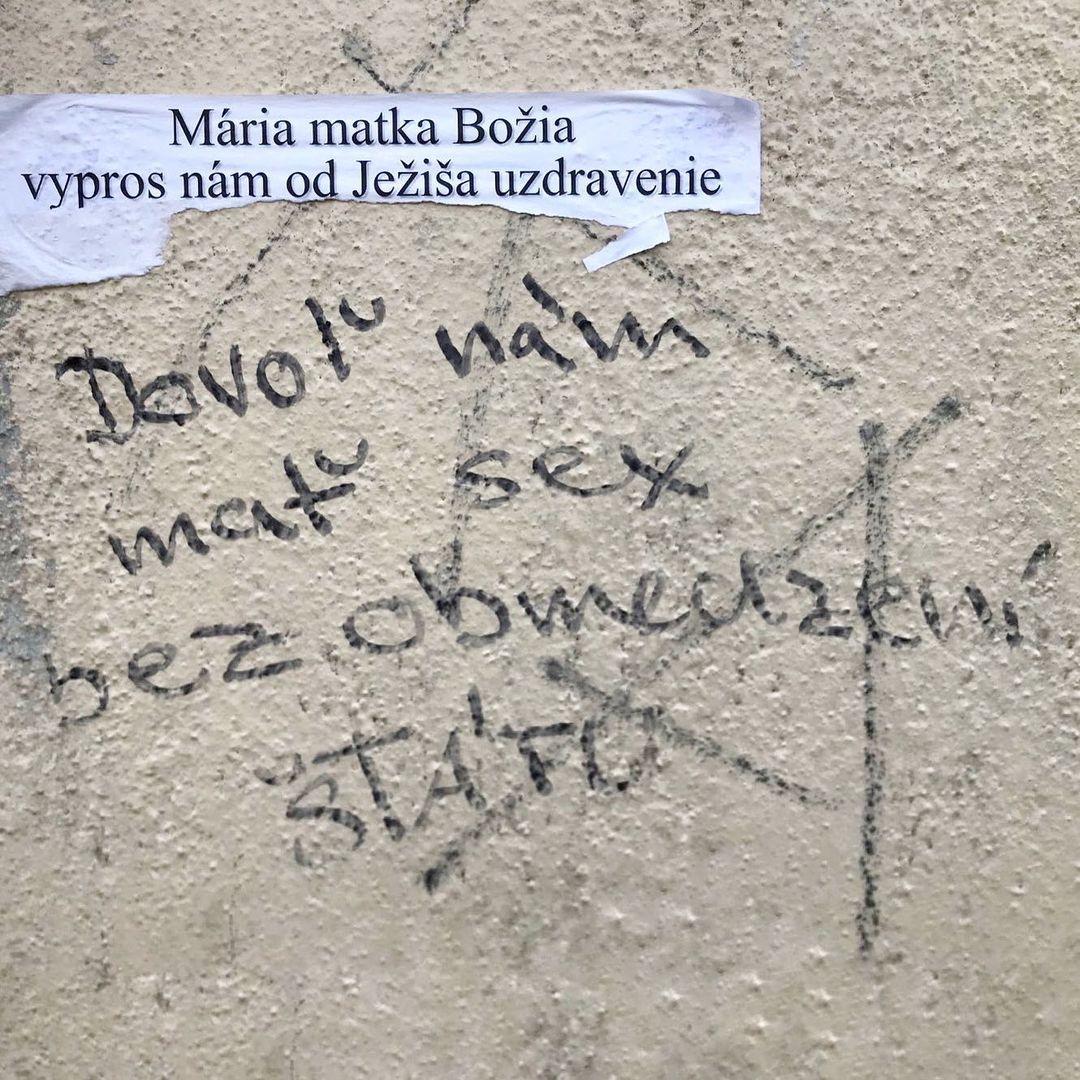 Mária matka Božia
vypros nám od Ježiša uzdravenie
Dovoľ nám
mať sex
bez obmedzení
ŠTÁTU